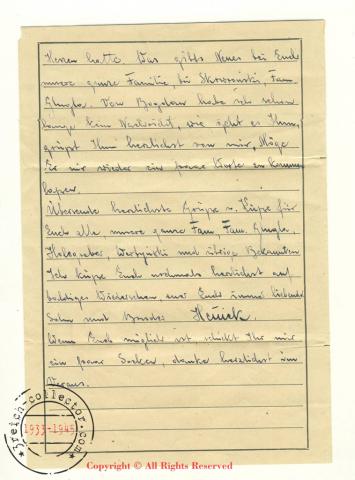 Herzen hatte. Was gibts Neues bei Euch
unsere ganze Familie, bei Skowronski, Fam.
Glugla. Von Bogdan habe ich schon
lange kein Nachricht, wie geht es Ihm,
grüsst Ihm herzlichst von mir, Möge
Er mir wieder ein paar Worte zu kommen
lassen.
Übersende herzlichste Grüsse u. Küsse für
Euch alle, unsere ganze Fam., Fam. Glugla,
und übrige Bekannten
Ich küsse Euch nochmals herzlichst auf
baldiges Wiedersehen, euer Euch immer liebender
Sohn und Bruder Heinek.
Wenn Euch möglich ist, schickt Ihr mir
ein paar Socken, danke herzlichst im
Voraus.
3reich-collector.com
1933-1945
Copyright © All Rights Reserved